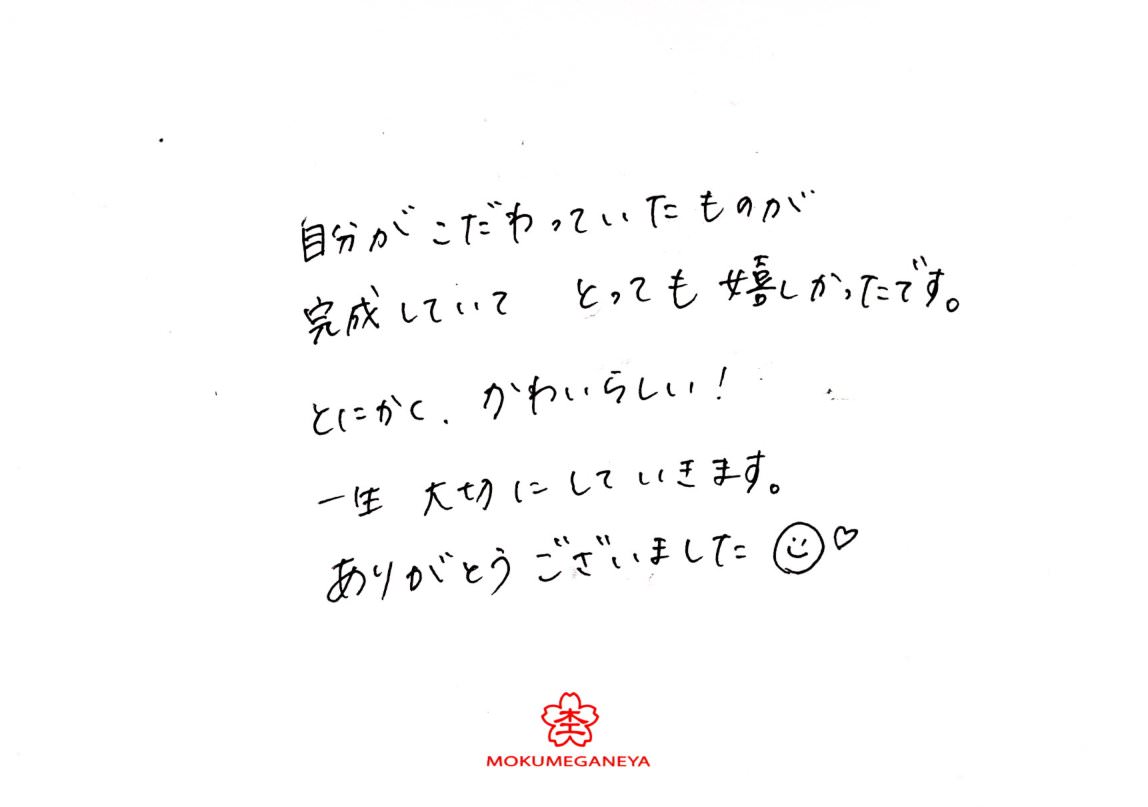 自分がこだわっていたものが
完成していて とっても嬉しかったです。
とにかく、かわいらしい!
一生 大切にしていきます。
ありがとうございました
MOKUMEGANEYA